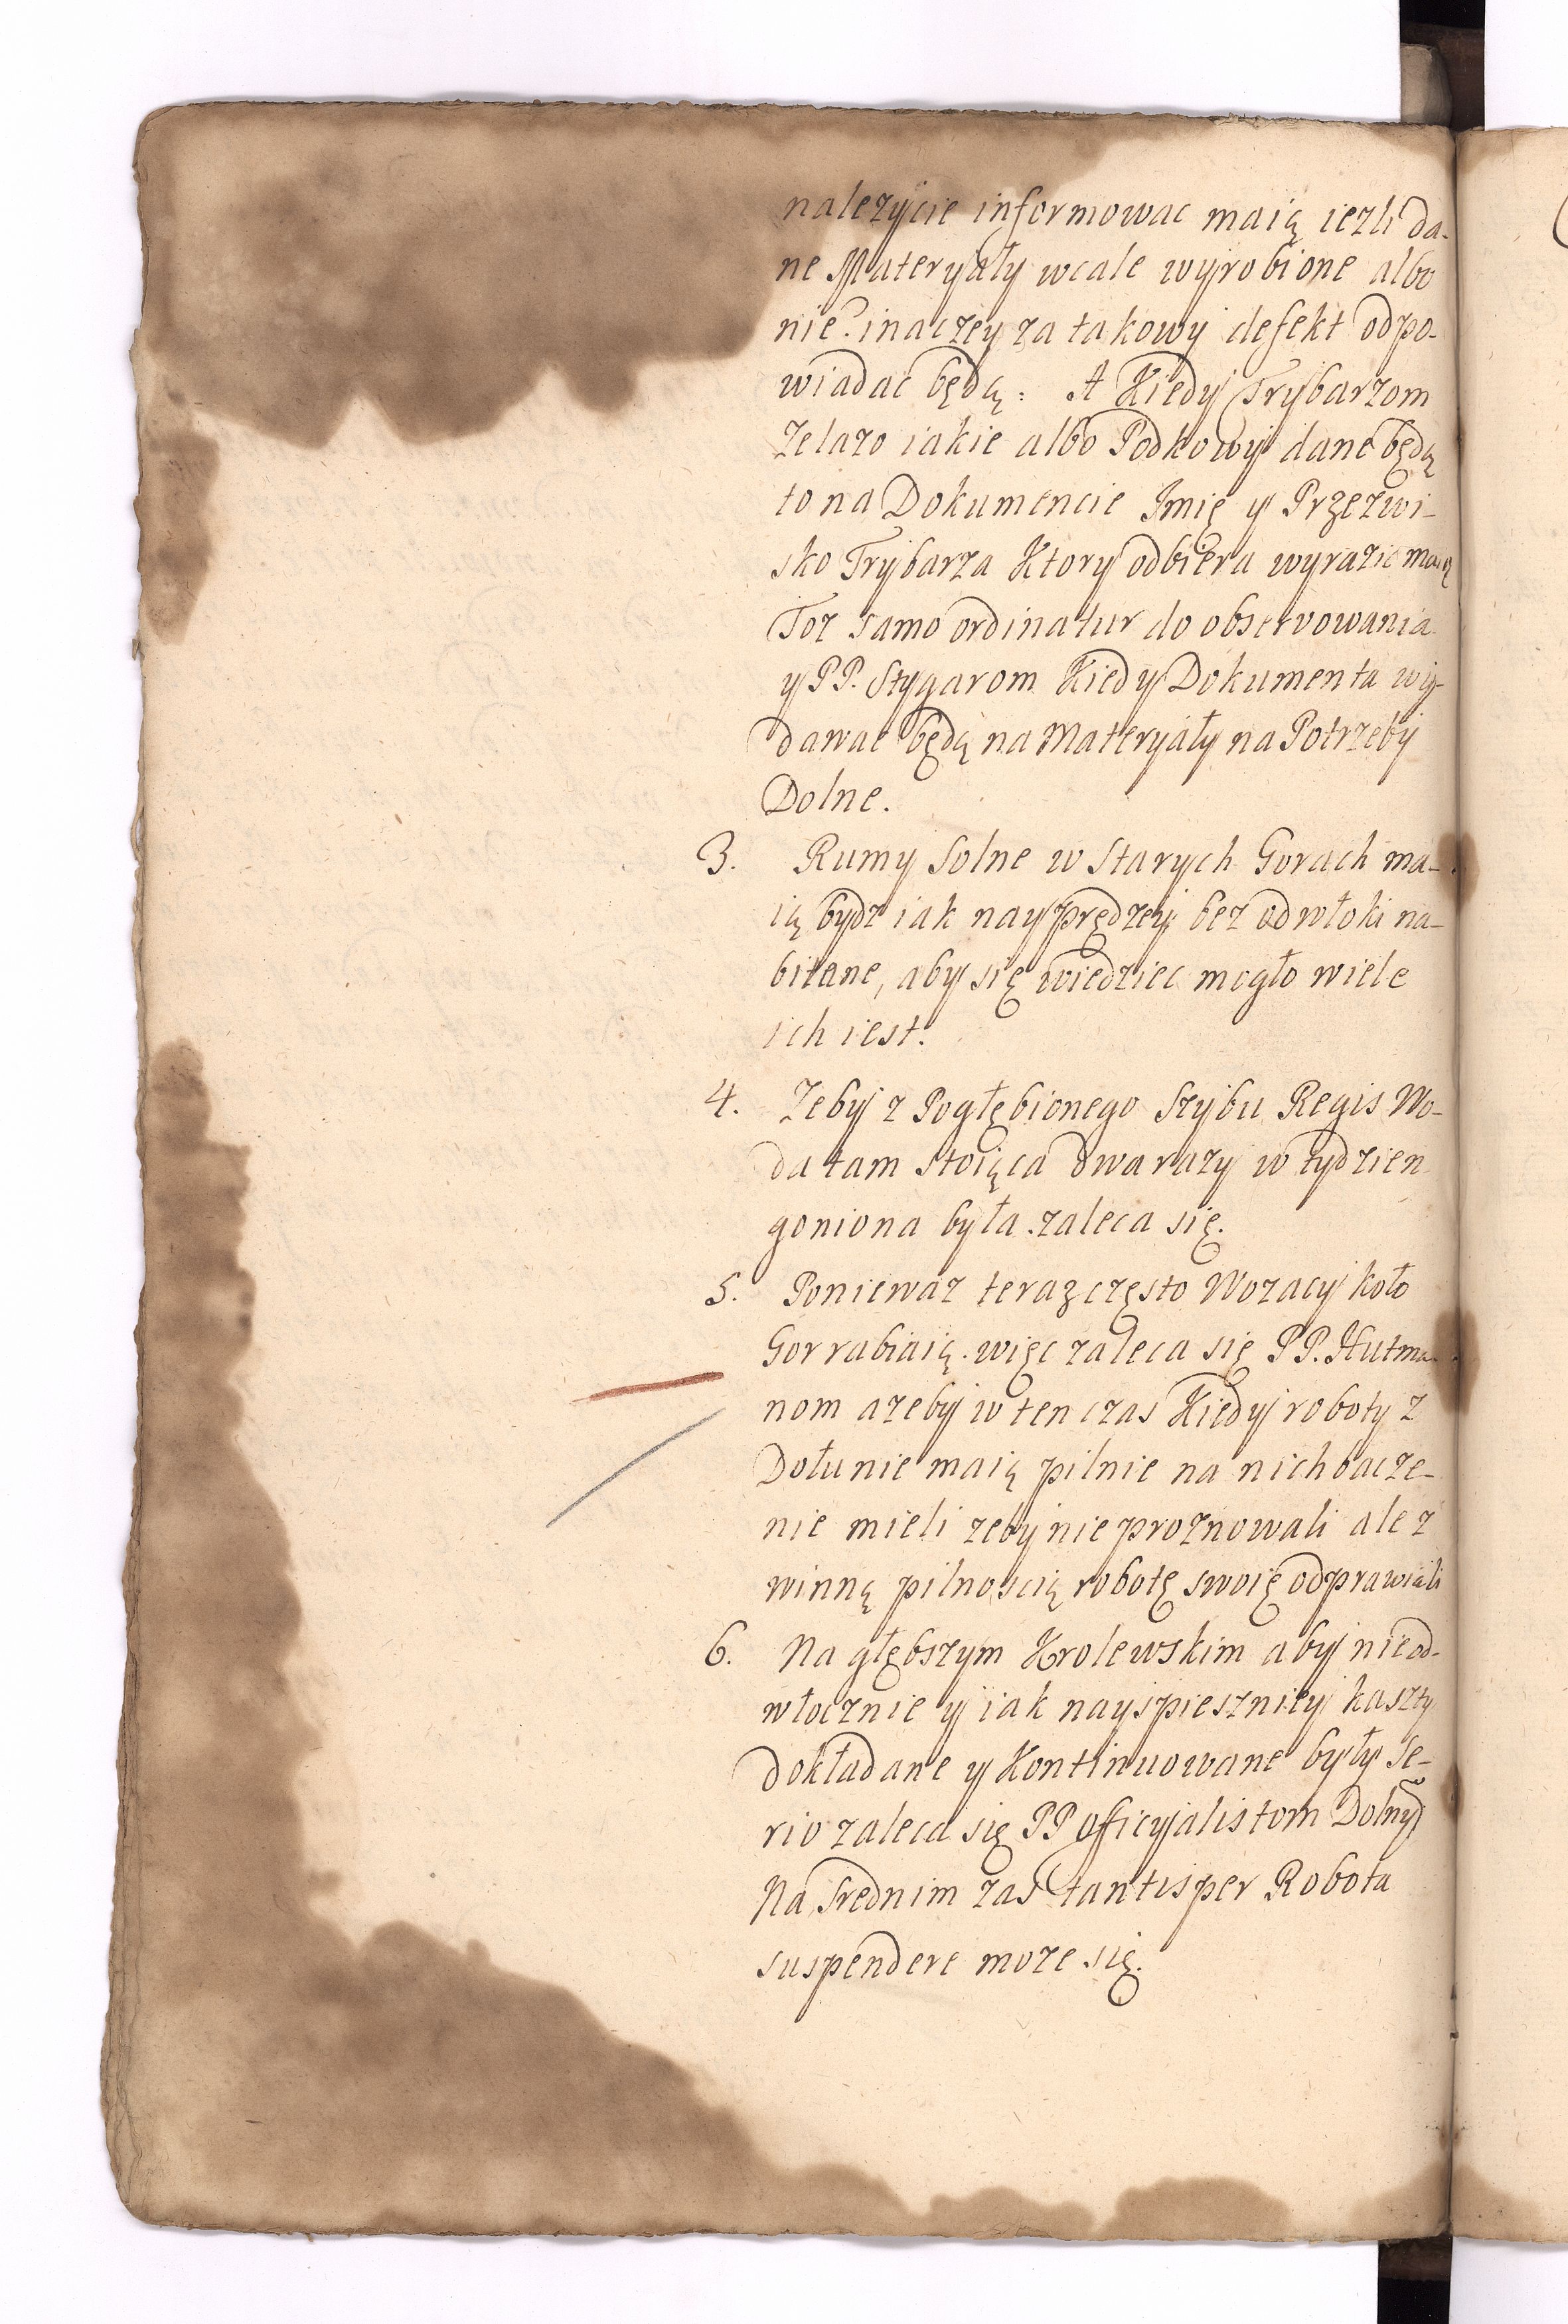 nalezycie informowac maią iezli da-
ne Materyały wcale wyrobione albo
nie. inaczey za takowy defekt odpo-
wiadac będą: A Kiedy Trybarzom
Zelazo iakie albo Podkowy dane będą
to na Dokumencie Imię y Przezwi-
sko Trybarza Ktory odbiera wyrazic maią
Toz samo ordinatur do obserwowania
y PP. Stygarom Kiedy Dokumenta wy-
dawac będą na Materyały na Potrzeby
Dolne.
3. Rumy Solne w Starych Gorach ma-
ią bydz iak nayprędzey bez odwłoki na-
bitane, aby się wiedziec mogło wiele
ich iest.
4. Zeby z Pogłębionego Szybu Regis Wo-
da tam stoiąca dwa razy w tydzien
goniona była. zaleca się.
5. Poniewaz teraz często Wozacy koło
Gor rabiaią. więc zaleca się PP. Hutma-
nom azeby w ten czas Kiedy roboty z
Dołu nie maią pilnie na nich bacze-
nie mieli zeby nie proznowali ale z
winną pilnoscią robotę swoię odprawiali
6. Na głębszym Krolewskim aby nieod-
włocznie y iak nayspieszniey kaszty
dokładane y Kontinuowane były Se-
rio zaleca się PP Officyalistom Dolny
Na Srednim zas tantisper Robota
suspendere moze się.